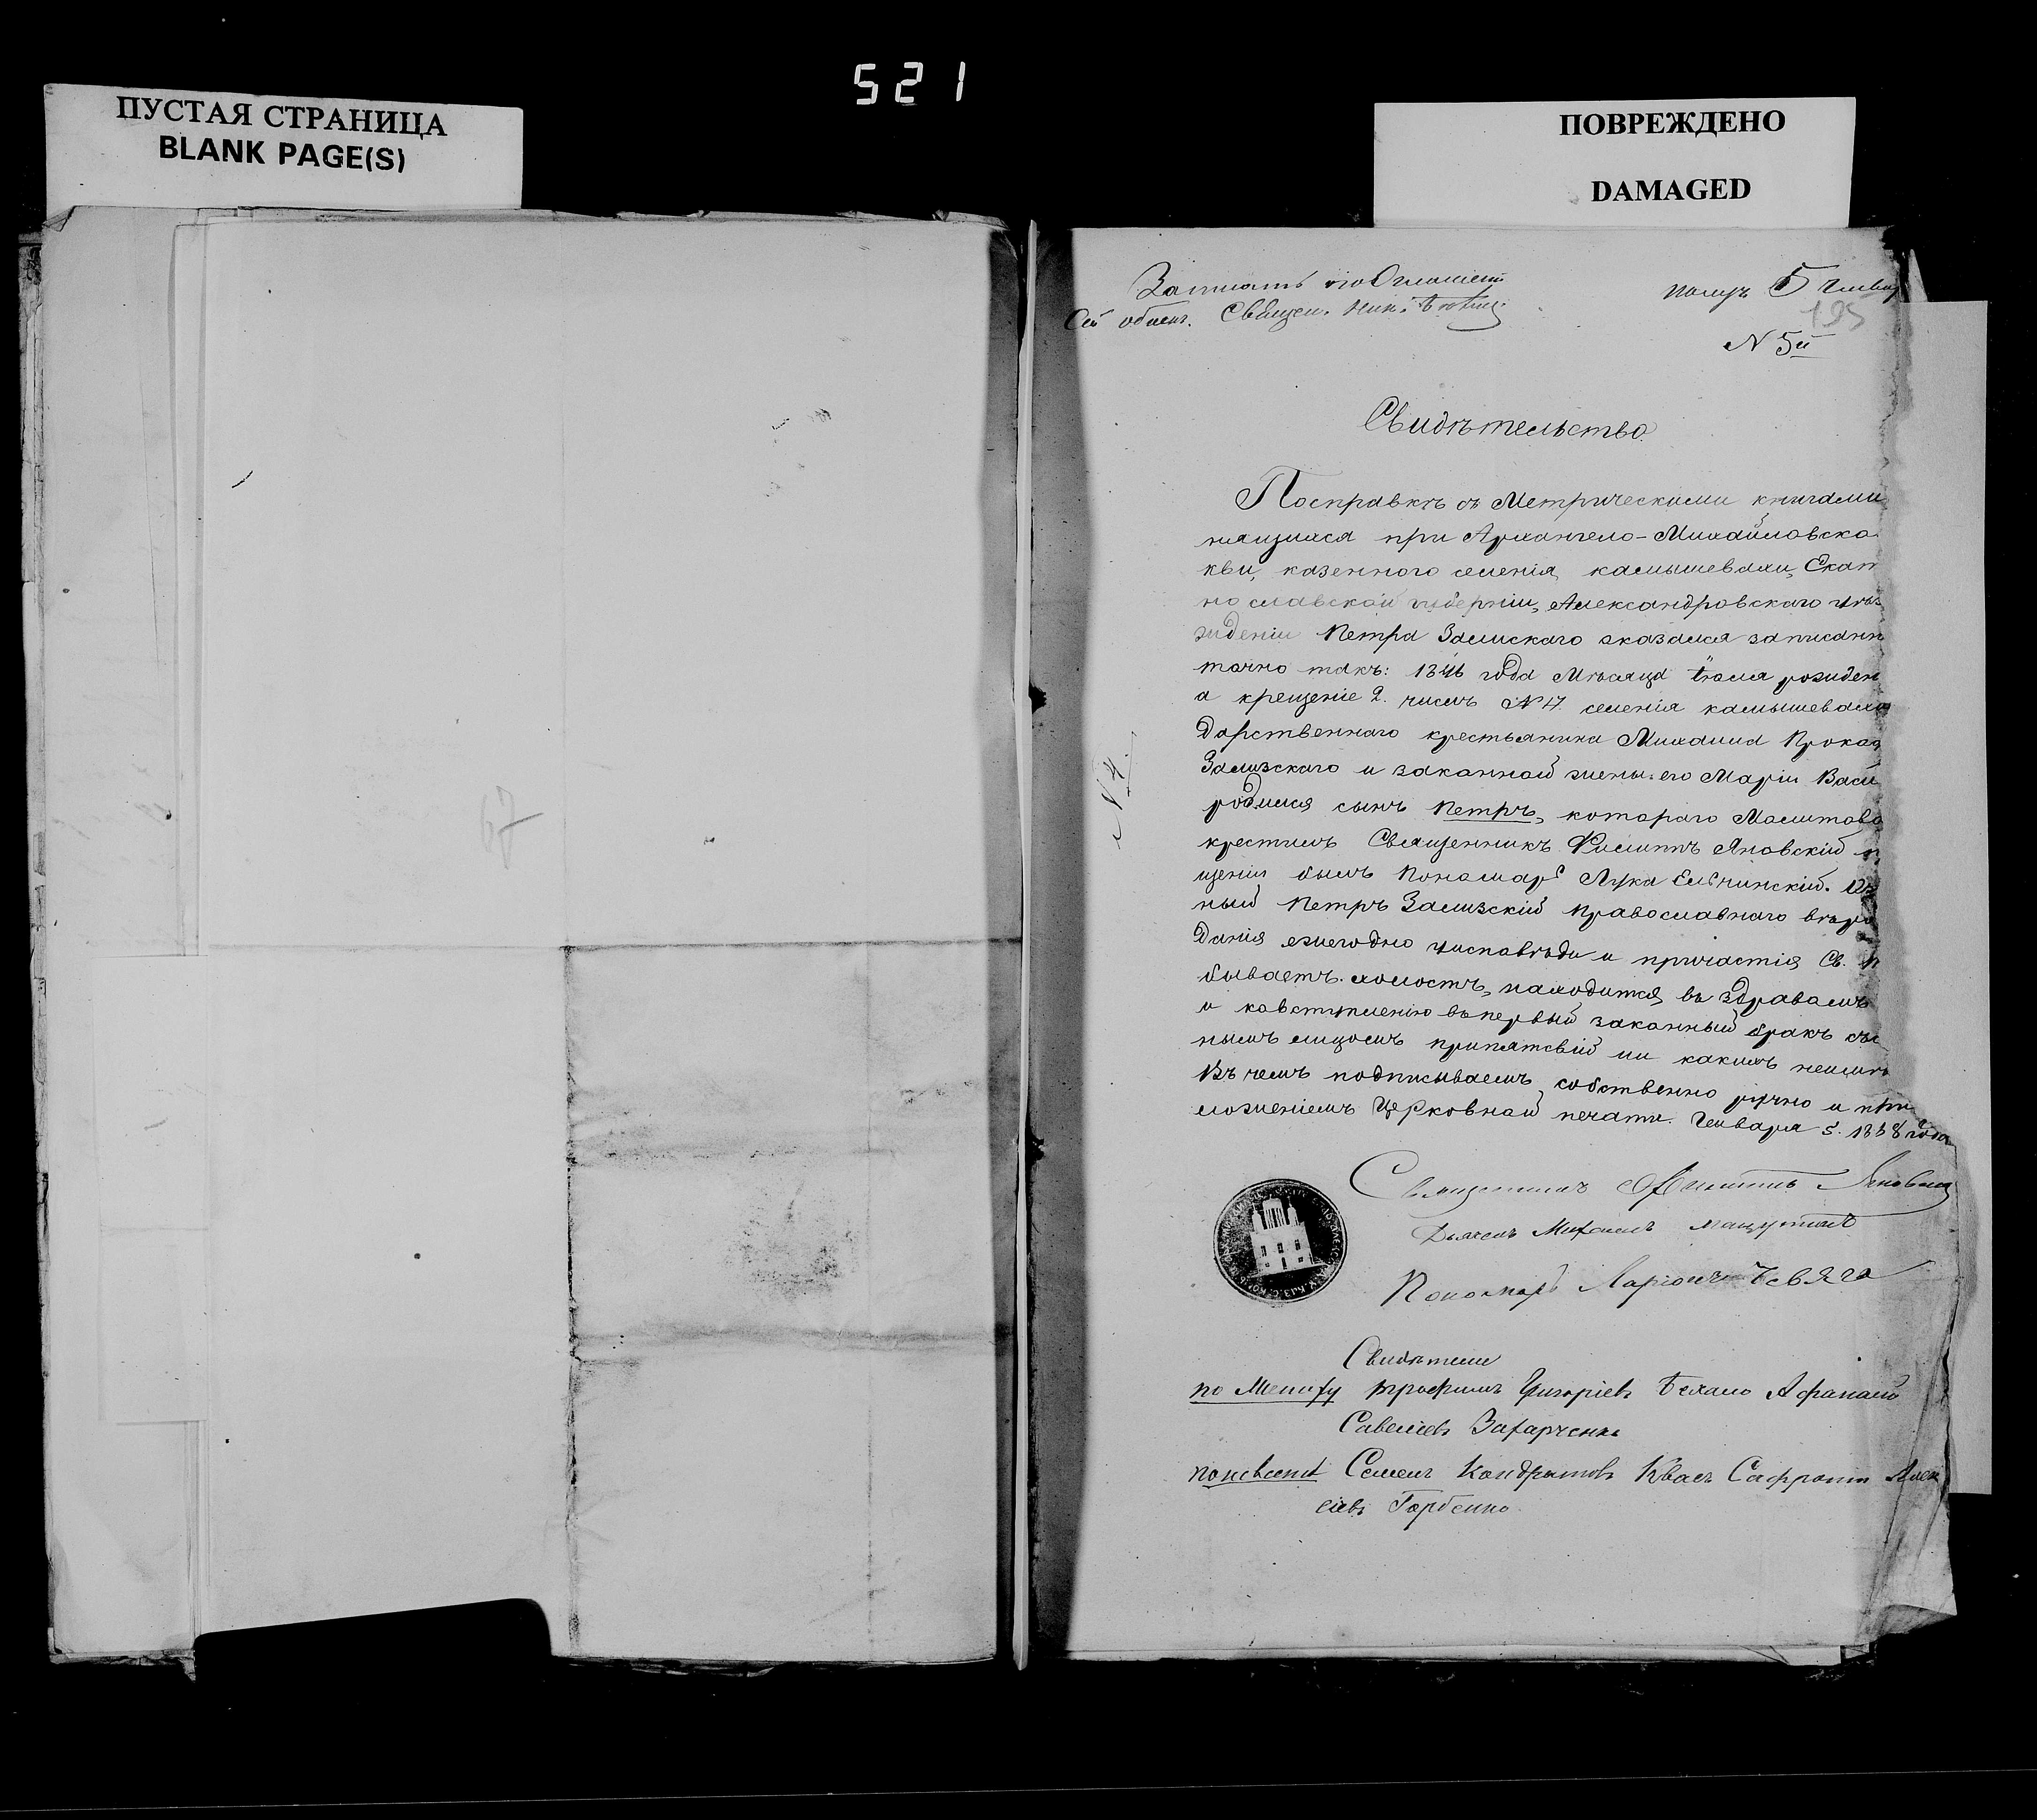 521
ПУСТАЯ СТРАНИЦА
BLANK PAGE(S)
ПОВРЕЖДЕНО
DAMAGED
67
Записать
Сей обыск. Священ. Ник.
получ 5 Генвар
195
N 5й
Свидѣтельство
Посправкѣ съ Метрическими книгами
нящимися при Архангело-Михайловско
кви, казенного селенія, камышевахи, Екат
нославской губерніи, Александровского уѣз
жденіи Петра Зализкаго оказался записанн
точно такъ: 1846 года Мѣсяца рожден
а крещеніе 2. числъ N 17. селенія камышевахи
дарственнаго крестьянина Михаила Прокоп
Зализскаго и законной жены его Маріи Васи
родился сынъ Петръ, котораго Молитвова
N 4.
крестилъ Священникъ Филиппъ Яновскій
щеніи былъ Пономарь Лука Ельчинскій.
ный Петръ Зализскій православнаго вѣро
данія ежегодно уисповѣди и причастія Св.
бываетъ. холостъ, находится въ здравомъ
и ковступленію въ первый законный бракъ съ
нымъ лицомъ припятсвій ни какихъ неимѣ
Въ чемъ подписываемъ собственно ручно и при
ложеніемъ Церковной печати. Генваря 5. 1868 года
Священникъ Филиппъ Яновскій
Дьячекъ Михаилъ
Пономарь Ларіонъ
Свидѣтели
по Жениху Трофимъ Григоріевъ Бехало Афанасій
Савеліевъ Захарченко
поневестѣ Семенъ Кондратовъ Квасъ Сафронъ Алек
сіевъ Горбенко